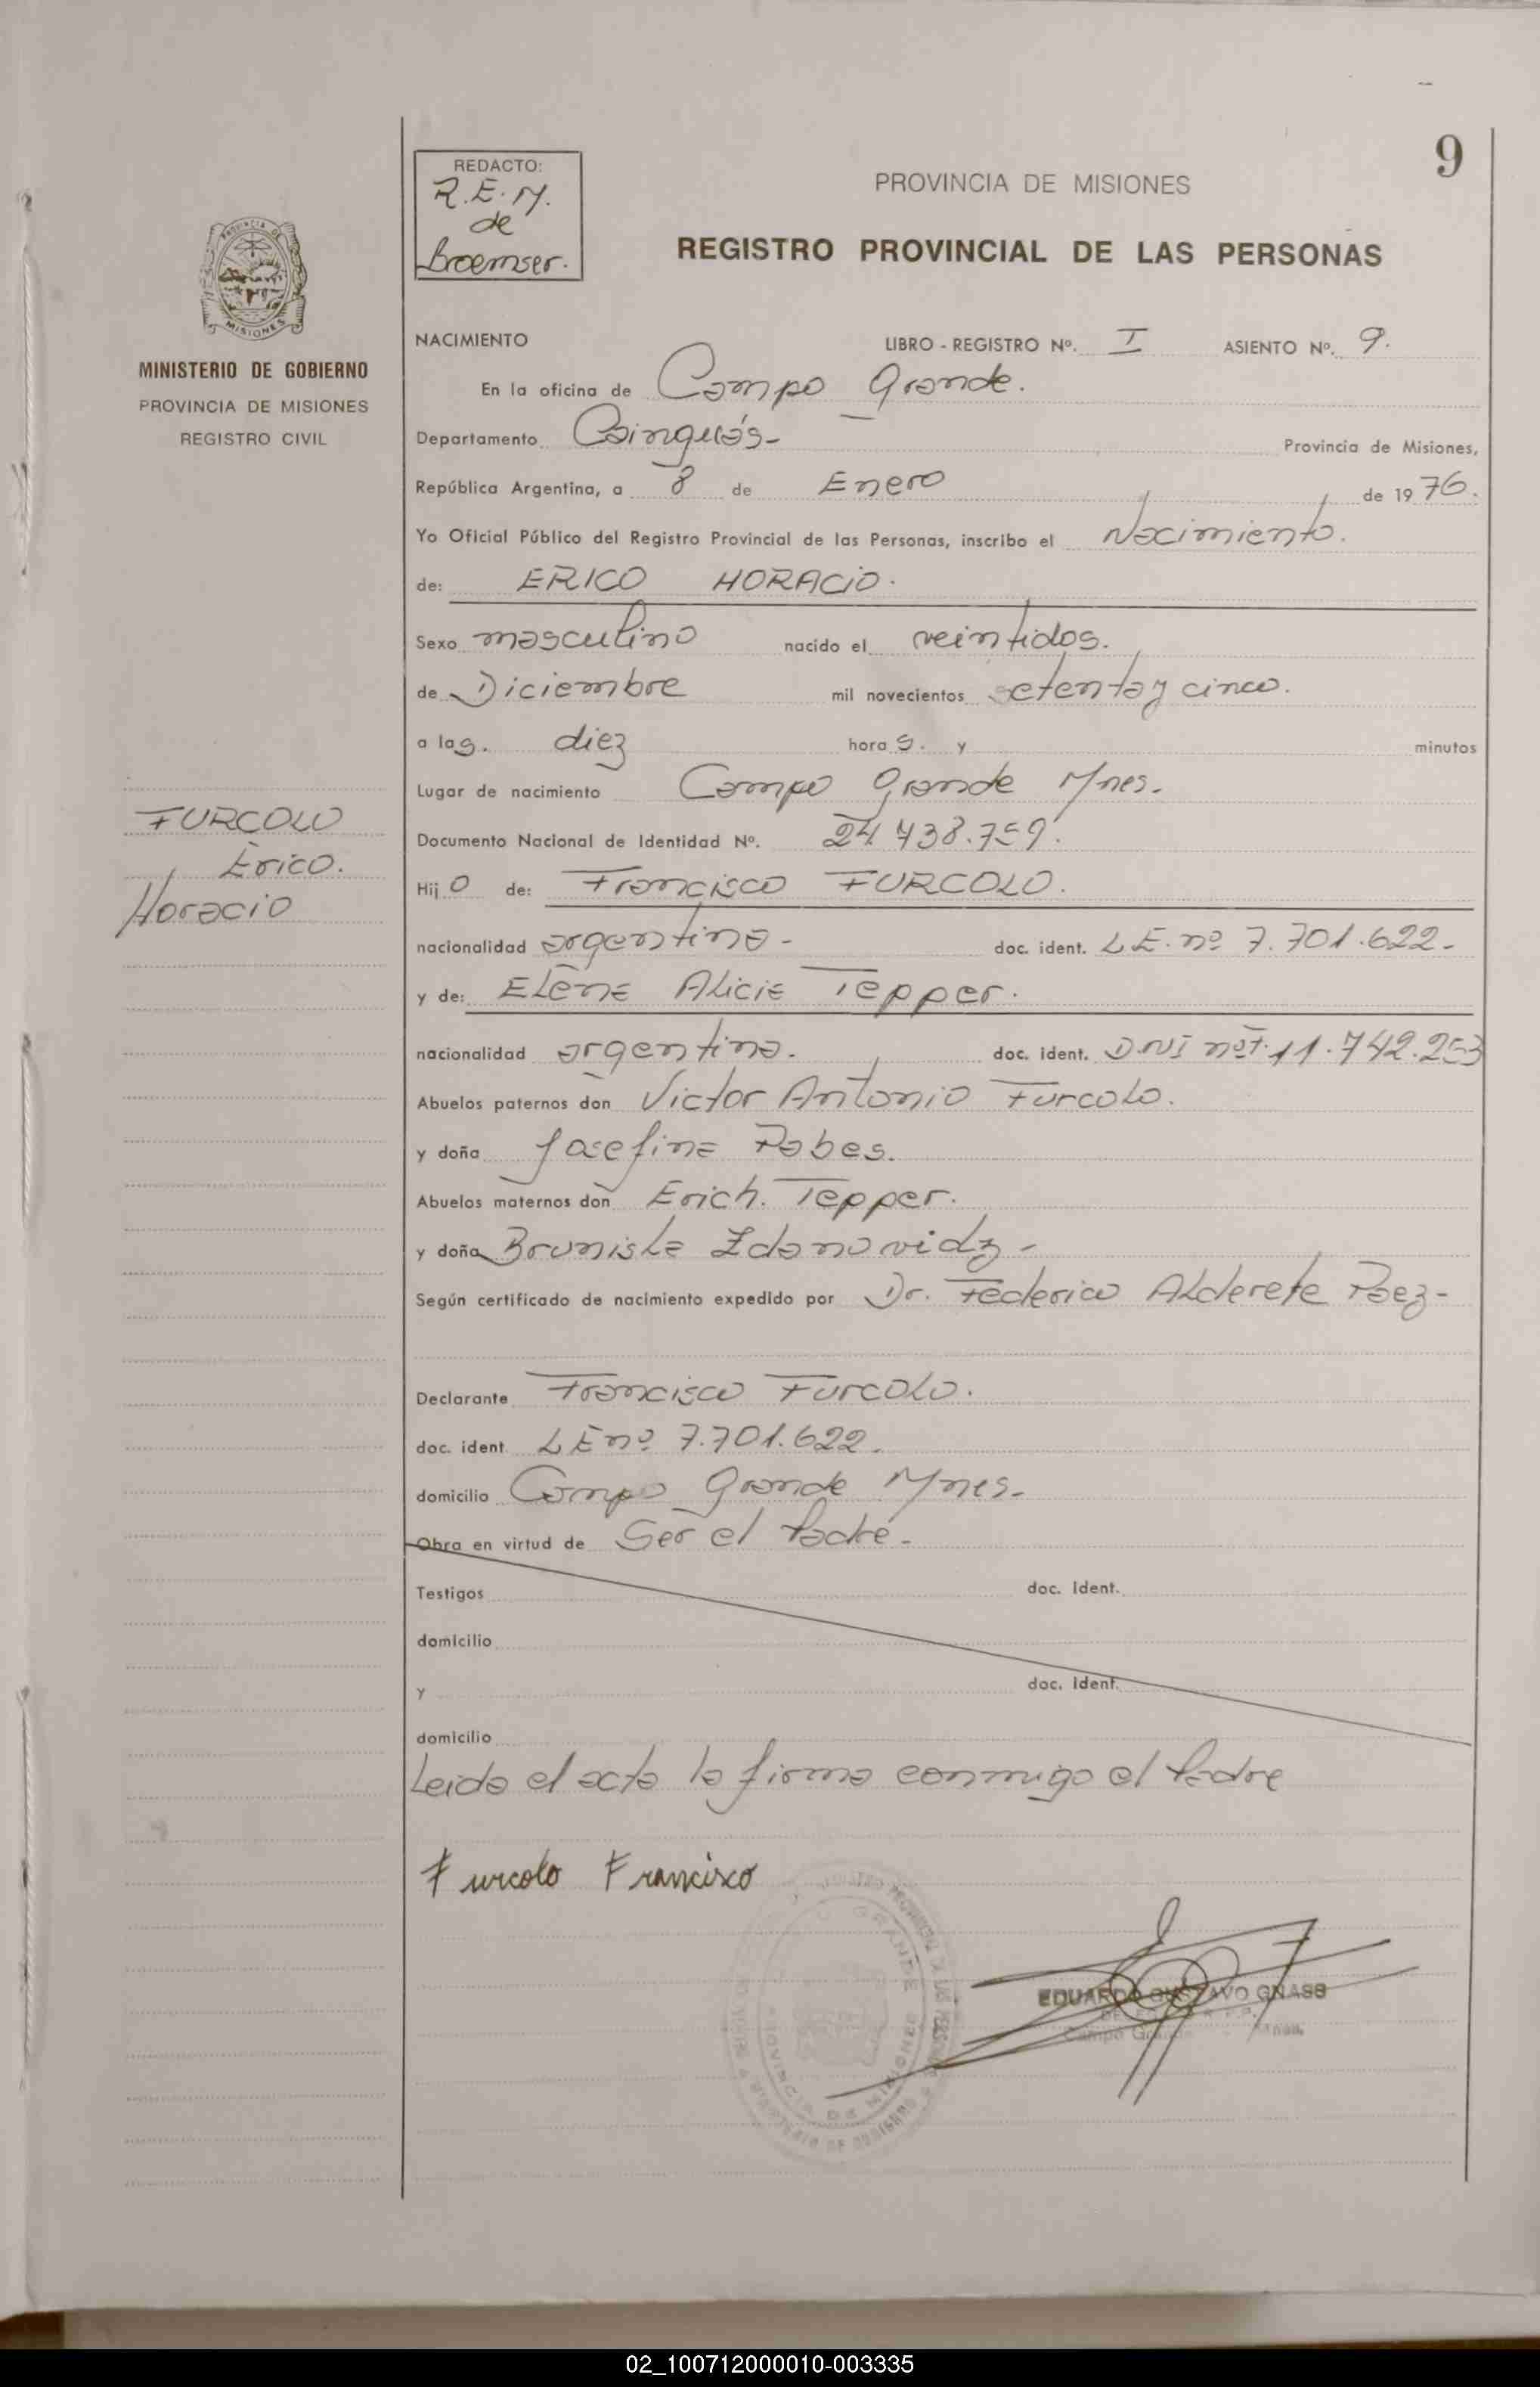 9
REDACTO:
R.E.M.
de
Broemser.
PROVINCIA DE MISIONES
REGISTRO PROVINCIAL DE LAS PERSONAS
PROVINCIA DE
MISIONES
MINISTERIO DE GOBIERNO
PROVINCIA DE MISIONES
REGISTRO CIVIL
NACIMIENTO LIBRO - REGISTRO Nº. I ASIENTO Nº. 9.
En la oficina de Campo Grande.
Departamento Cainguás-
Provincia de Misiones,
República Argentina, a 8 de Enero de 1976.
Yo Oficial Público del Registro Provincial de las Personas, inscribo el Nacimiento.
de: ERICO HORACIO.
Sexo masculino nacido el veintidos.
de Diciembre mil novecientos setenta y cinco.
a las. diez horas. y minutos
Lugar de nacimiento Campo Grande Mnes.
Documento Nacional de Identidad Nº. 24.438.759.
FURCOLO
Erico.
Horacio
Hijo de: Francisco FURCOLO.
nacionalidad argentina- doc. ident. L.E. nº 7.701.622-
y de: Elena Alicia Tepper.
nacionalidad argentina. doc. ident. DNI 11.742.253
Abuelos paternos don Victor Antonio Furcolo.
y doña Josefina Pabes.
Abuelos maternos don Erich. Tepper.
y doña
Según certificado de nacimiento expedido por Dr. Federico Alderete Paez-
Declarante Francisco Furcolo.
doc. ident. LE nº 7.701.622.
domicilio Campo Grande Mnes-
Obra en virtud de Ser el Padre-
Testigos doc. Ident.
domicilio
y doc. Ident.
domicilio
Leida el acta la firma conmigo el Padre
Furcolo Francisco
EDUARDO GUSTAVO GNASS
Campo Grande
02_100712000010-003335